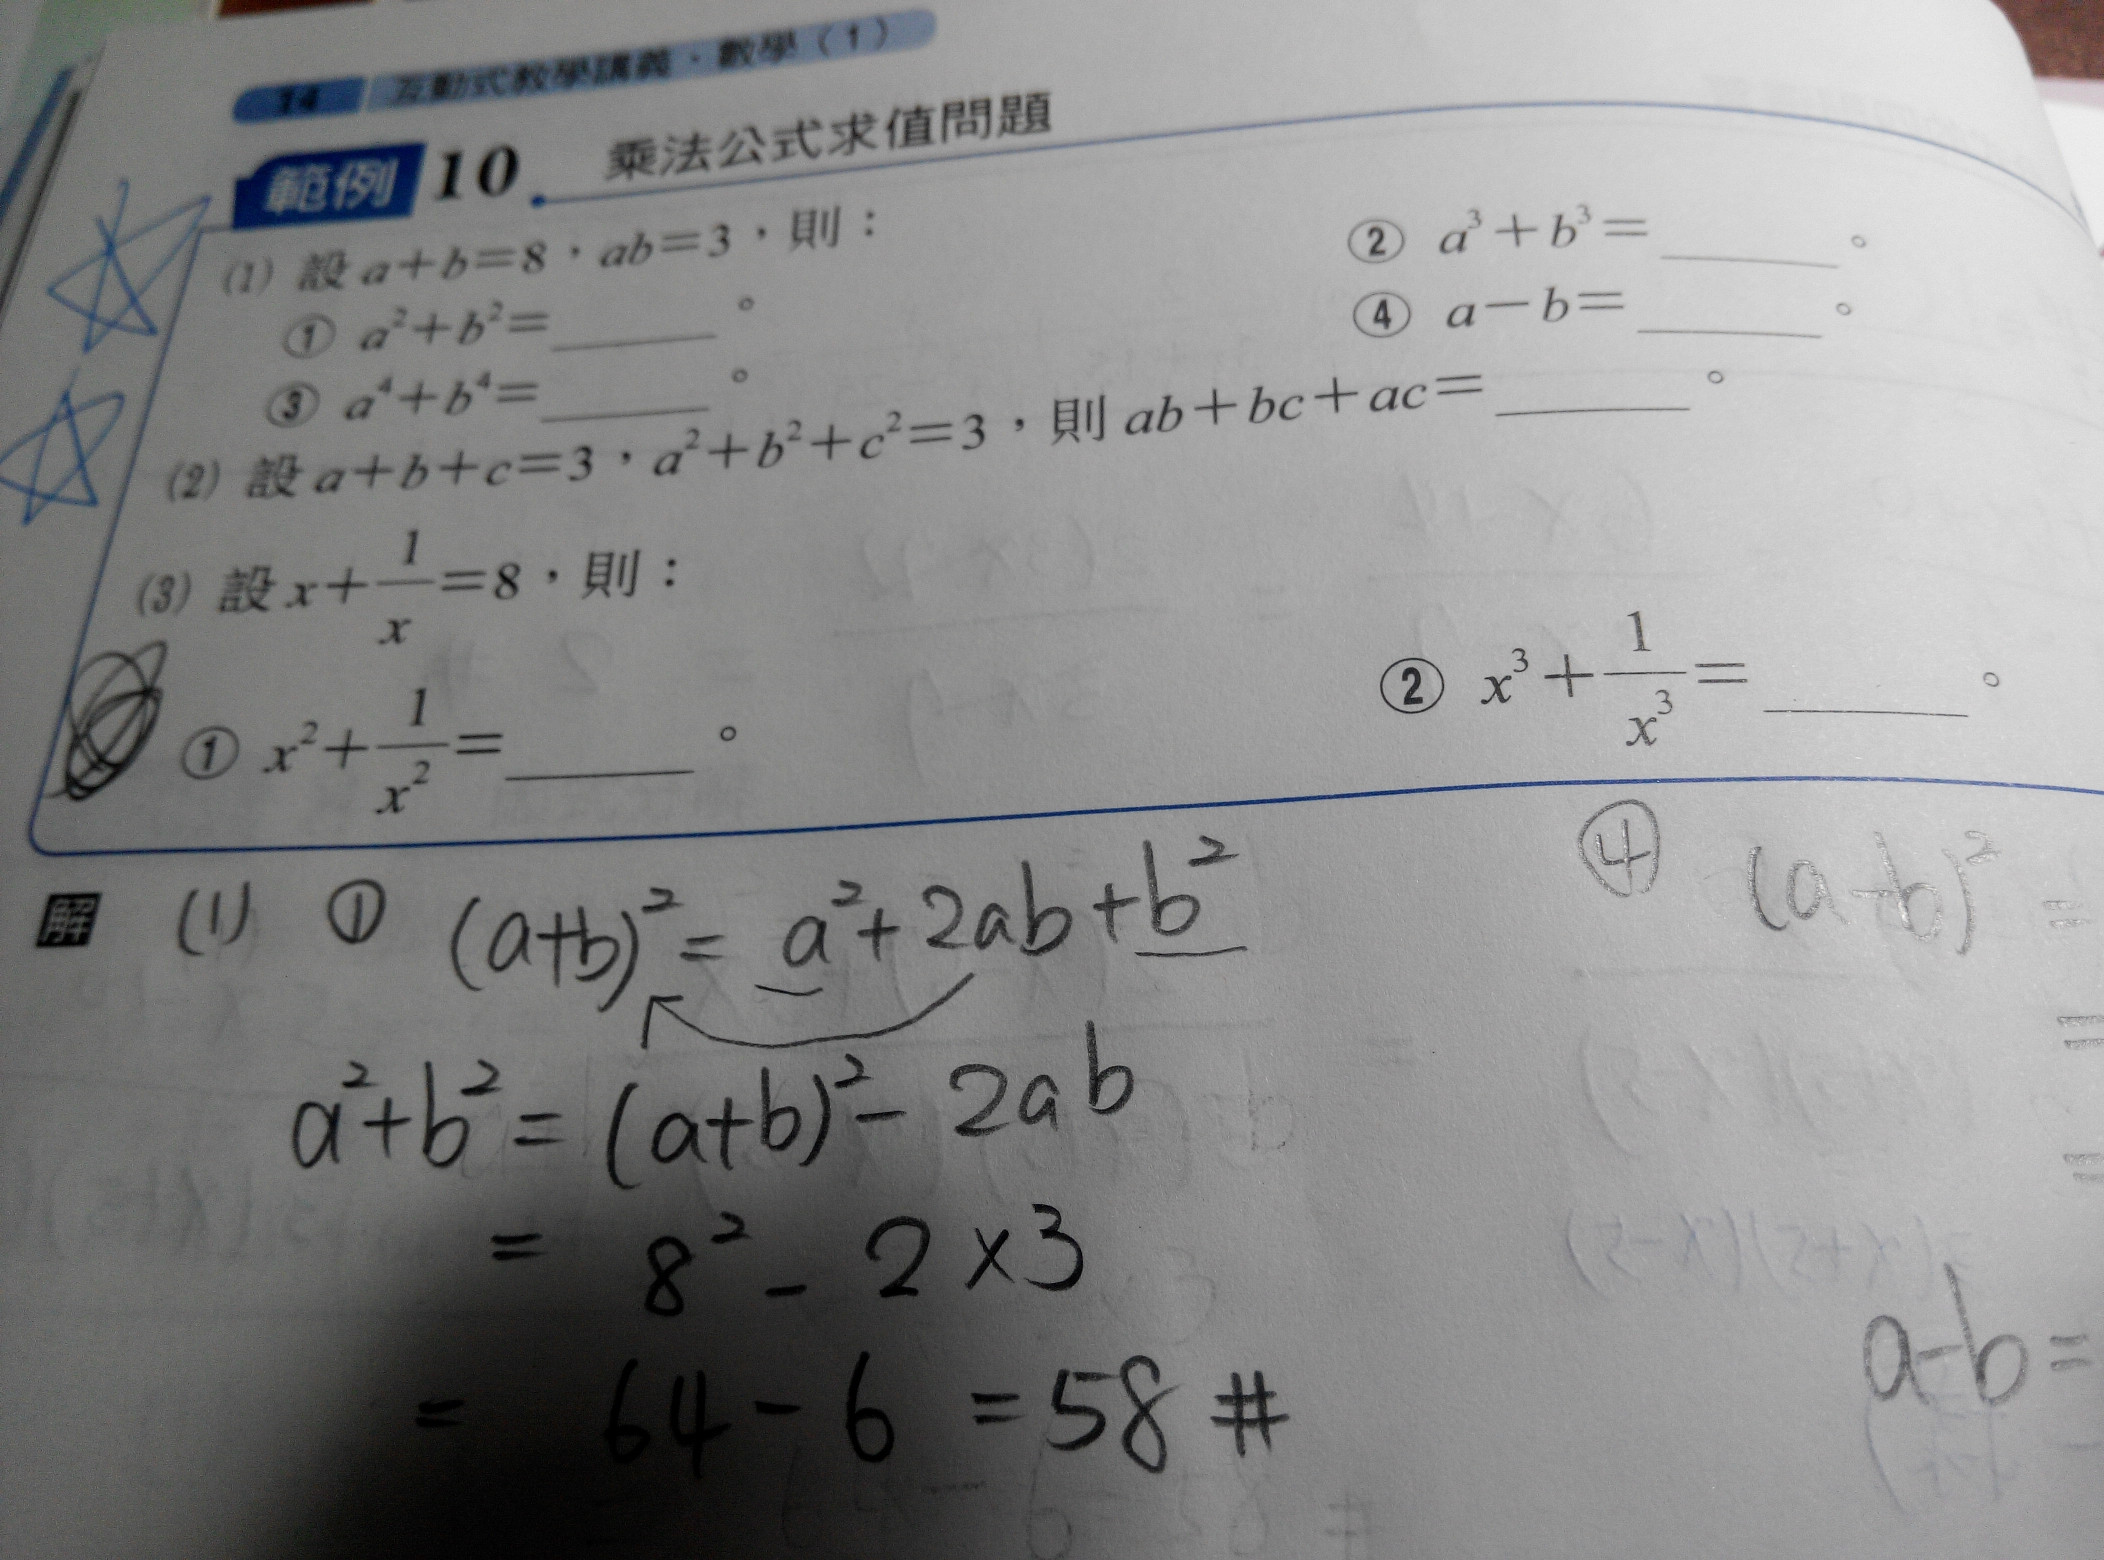 14 互動式教學講義·數學（1）
範例 10 乘法公式求值問題
(1) 設 a+b=8，ab=3，則：
① a²+b²=______。 ② a³+b³=______。
③ a⁴+b⁴=______。 ④ a−b=______。
(2) 設 a+b+c=3，a²+b²+c²=3，則 ab+bc+ac=______。
(3) 設 x+1/x=8，則：
① x²+1/x²=______。 ② x³+1/x³=______。
解 (1) ① (a+b)²= a²+2ab+b² ④ (a-b)² =
=
a²+b² = (a+b)²- 2ab
=
= 8² - 2×3
a-b=
= 64-6 =58 #